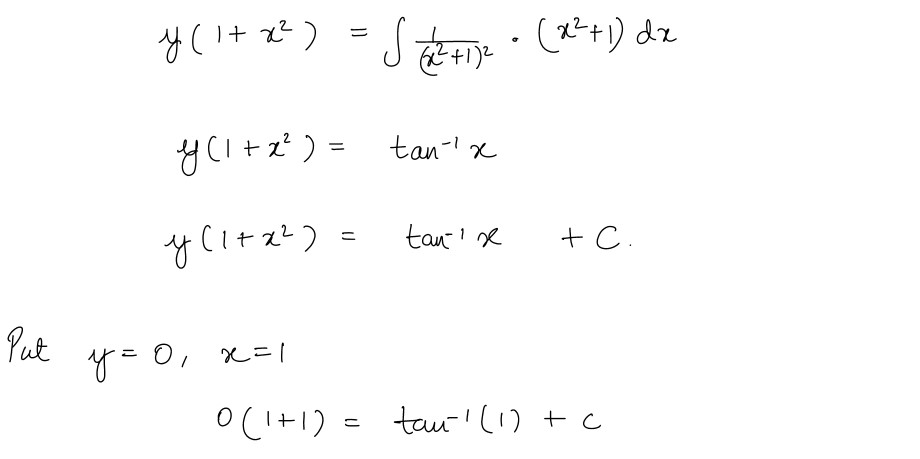 y(1+x²) = ∫ 1/(x²+1)² . (x²+1) dx
y(1+x²) = tan⁻¹ x
y(1+x²) = tan⁻¹ x + C.
Put y=0, x=1
0(1+1) = tan⁻¹(1) + c